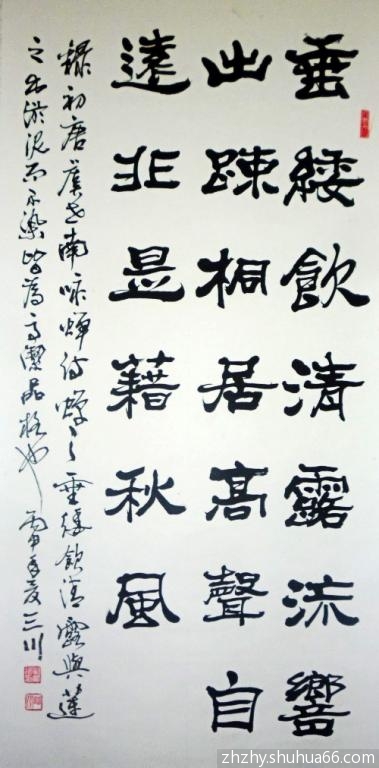 垂緌飲清露流響
出踈桐居高聲自
遠非是藉秋風
録初唐虞世南咏蟬詩蟬之垂緌飲清露與蓮
之出淤泥而不染皆為高潔品格也丙申年夏三川
zhzhy.shuhua66.com